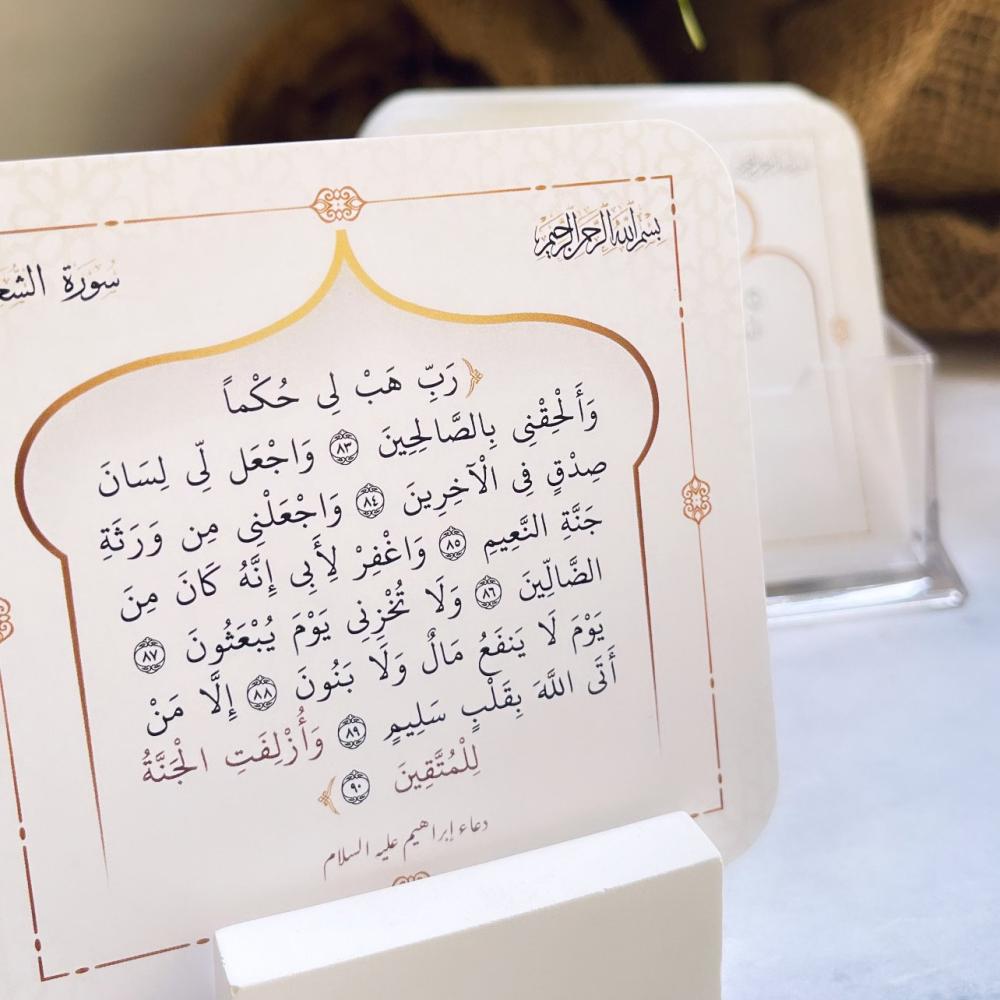 بسم الله الرحمن الرحيم
سورة
﴿رَبِّ هَبْ لِى حُكْماً
وَأَلْحِقْنِى بِالصَّالِحِينَ ٨٣ وَاجْعَل لِّى لِسَانَ
صِدْقٍ فِى الْآخِرِينَ ٨٤ وَاجْعَلْنِى مِن وَرَثَةِ
جَنَّةِ النَّعِيمِ ٨٥ وَاغْفِرْ لِأَبِى إِنَّهُ كَانَ مِنَ
الضَّالِّينَ ٨٦ وَلَا تُخْزِنِى يَوْمَ يُبْعَثُونَ ٨٧
يَوْمَ لَا يَنفَعُ مَالٌ وَلَا بَنُونَ ٨٨ إِلَّا مَنْ
أَتَى اللَّهَ بِقَلْبٍ سَلِيمٍ ٨٩ وَأُزْلِفَتِ الْجَنَّةُ
لِلْمُتَّقِينَ ٩٠﴾
دعاء إبراهيم عليه السلام